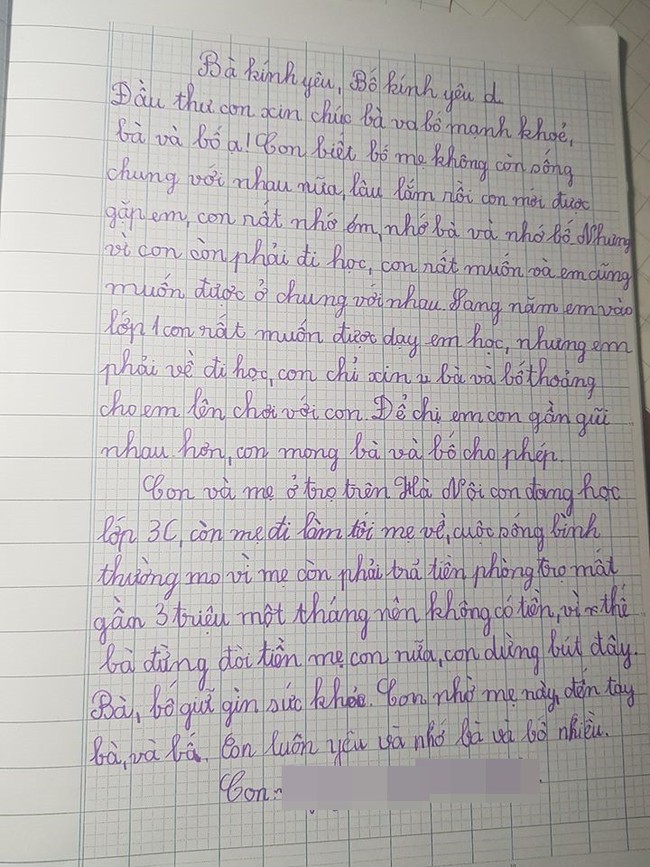 Bà kính yêu, Bố kính yêu d
Đầu thư con xin chúc bà va bố mạnh khoẻ,
bà và bố ạ! Con biết bố mẹ không còn sống
chung với nhau nữa, lâu lắm rồi con mới được
gặp em, con rất nhớ em, nhớ bà và nhớ bố. Nhưng
vì con còn phải đi học, con rất muốn và em cũng
muốn được ở chung với nhau. Sang năm em vào
lớp 1 con rất muốn được dạy em học, nhưng em
phải về đi học, con chỉ xin bà và bố thoảng
cho em lên chơi với con. Để chị em con gần gũi
nhau hơn, con mong bà và bố cho phép.
Con và mẹ ở trọ trên Hà Nội con đang học
lớp 3C, còn mẹ đi làm tối mẹ về, cuộc sống bình
thường mo vì mẹ còn phải trả tiền phòng trọ mất
gần 3 triệu một tháng nên không có tiền, vì thế
bà đừng đòi tiền mẹ con nữa, con dừng bút đây.
Bà, bố giữ gìn sức khỏe. Con nhờ mẹ này, đến tay
bà, và bố. Con luôn yêu và nhớ bà và bố nhiều.
Con: